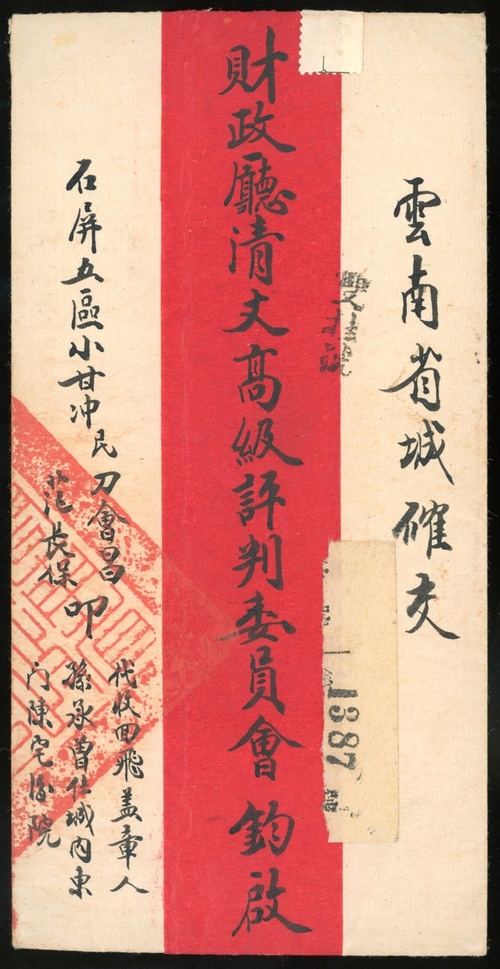 雲南省城確交
財政廳清丈高級評判委員會 鈞啟
石屏五區小甘冲民 刀會昌 范長保 叩
代收回飛盖章人
孫承曾住城内東
门陳宅後院
雙掛號
1387